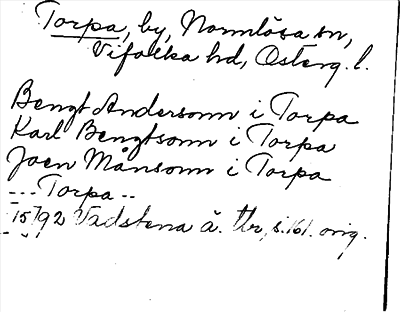 Torpa, by, Normlösa sn,
Vifolka hd, Österg. l.
Bengt Andersonn i Torpa
Karl Bengtsonn i Torpa
Joen Månsonn i Torpa
--- Torpa --
1592 Vadstena ä. tbr, s. 161. orig.